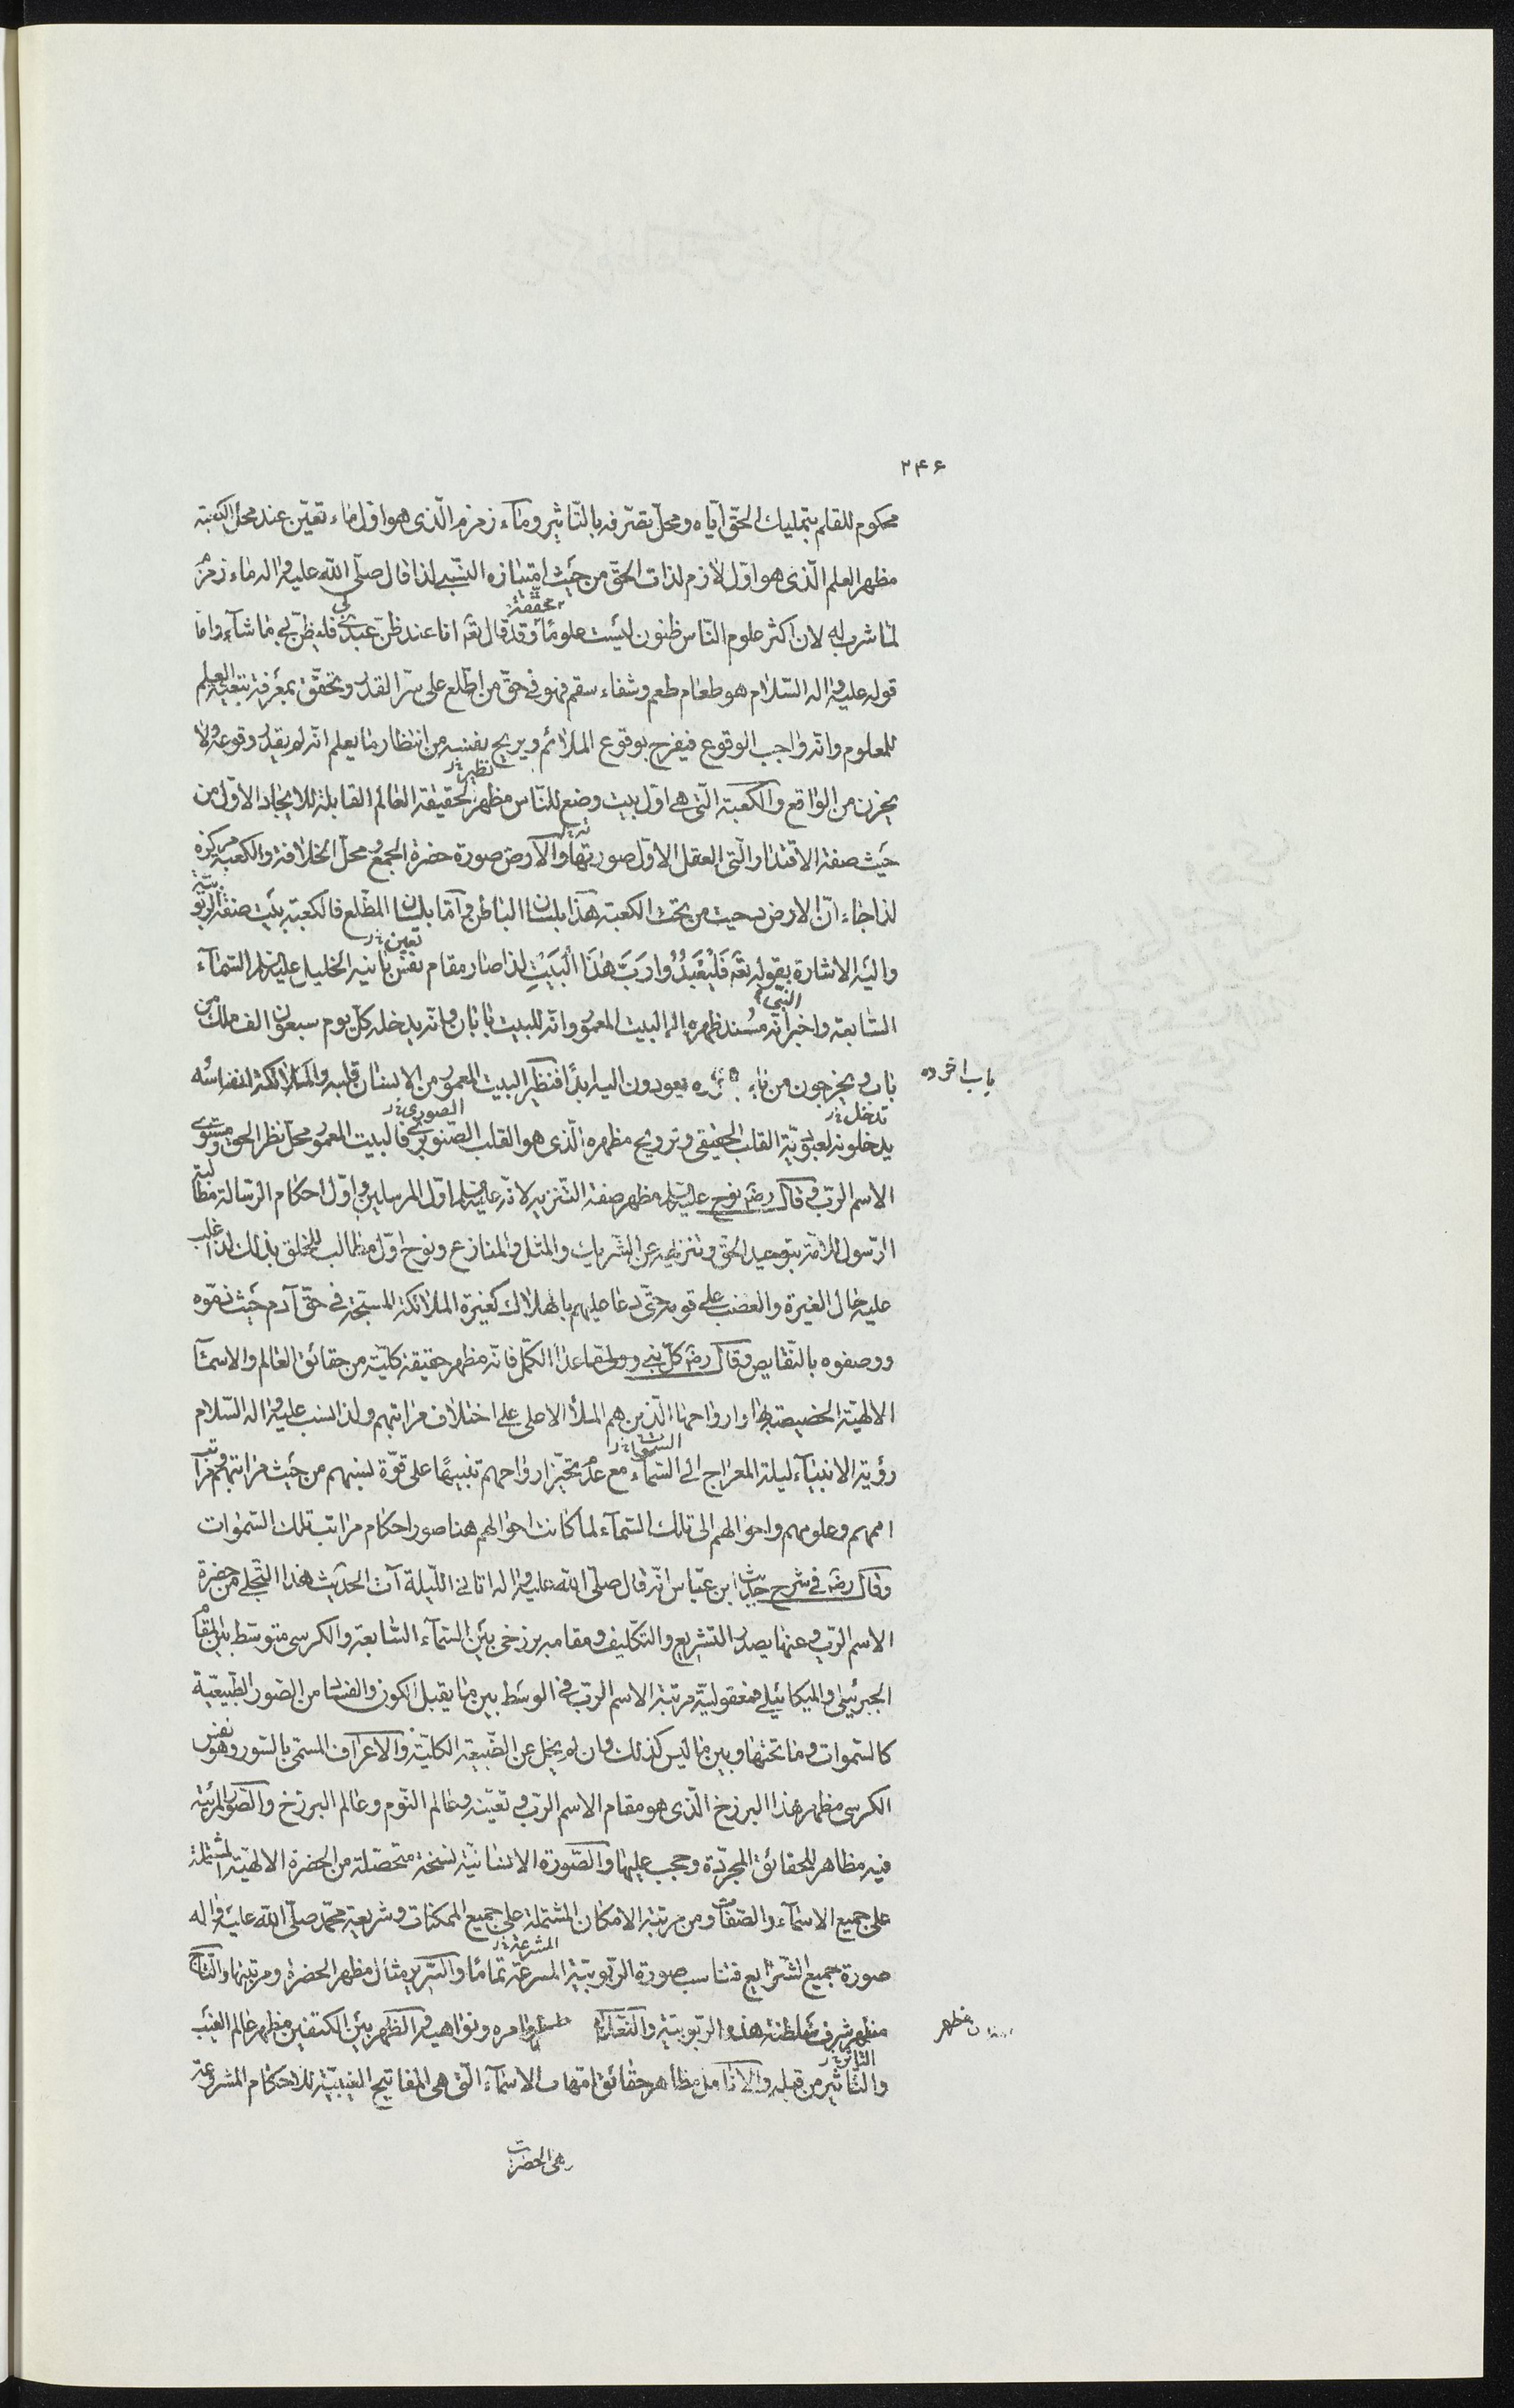 ۲۴۶
محكوم للقلم بتمليك الحقّ ايّاه ومحلّ تصرّفه بالتّاثير وماء زمزم الّذى هو اوّل ماء تعيّن عند محلّ الكعبة
مظهر العلم الّذى هو اوّل لازم لذات الحقّ من حيث امتيازه النسبى لذا قال صلّى الله عليه واله ماء زمزم
محققة
لما شرب له لان اكثر علوم النّاس ظنون ليست علومًا وقد قال تعه انا عند ظنّ عبدى بى فليظنّ بى ما شاء واما
قوله عليه واله السّلام هو طعام طعم وشفاء سقم فهو فى حقّ من اطّلع على سرّ القدر وتحقّق بمعرفة تبعية العلم
للمعلوم وانّه واجب الوقوع فيفرح بوقوع الملائم ويريح نفسه من انتظار ما يعلم انّه لم يقدر وقوعه ولا
نظير خ‌ر
يحزن من الواقع والكعبة الّتى هى اوّل بيت وضع للنّاس مظهر لحقيقة العالم القابلة للايجاد الاوّل من
حيث صفة الاقتدار والّتى العقل الاوّل صورتها والارض صورة حضرة الجمع ومحلّ الخلافة والكعبة مركزه
لذا جاء انّ الارض دحيت من تحت الكعبة هذا بلسان الباطن وامّا بلسان المطّلع فالكعبة بيت صفة الربوبيّة
تعين خ‌ر
واليه الاشارة بقوله تعه فَلْيَعْبُدُوا رَبَّ هٰذَا الْبَيْتِ لذا صار مقام نفس بانيه الخليل عليه السلم السّماء
النبى
السّابعة واخبر انّه مسند ظهره الى البيت المعمور وانّه للبيت بابان وانّه يدخله كلّ يوم سبعون الف ملك من
باب ويخرجون من باب يعودون اليه ابدًا فنظير البيت المعمور من الانسان قلبه والملائكة انفاسه
باب اخر ده
تدخل خ‌ر الصورى خ‌ر
يدخلونه لعبوديّة القلب الحقيقى وترويح مظهره الّذى هو القلب الصّنوبرى فالبيت المعمور محلّ نظر الحقّ ومستوى
الاسم الربّ وقال رضه نوح عليه السلم مظهر صفة التّنزيه لانّه عليه السلم اوّل المرسلين واوّل احكام الرّسالة مطالبة
الرّسول الامّة بتوحيد الحقّ وتنزيهه عن الشّريك والمثل والمنازع ونوح اوّل مطالب للخلق بذلك لذا غلب
عليه حال الغيرة والغضب على قومه حتّى دعا عليهم بالهلاك كغيرة الملائكة المسبّحة فى حقّ آدم حيث ذمّوه
ووصفوه بالنّقايص وقال رضه كلّ نبى وولى ما عدا الكمّل فانّه مظهر حقيقة كليّة من حقائق العالم والاسماء
الالهيّة الخصيصة بها وارواحها الّذين هم الملأ الاعلى على اختلاف مراتبهم ولذا نسب عليه واله السّلام
السموات خ‌ر
رؤية الانبياء ليلة المعراج الى السّماء مع عدم تحيّز ارواحهم تنبيهًا على قوّة نسبهم من حيث مراتبهم ومراتب
اممهم وعلومهم واحوالهم الى تلك السّماء لما كانت احوالهم هنا صور احكام مراتب تلك السّموات
وقال رضه فى شرح حديث ابن عبّاس انّه قال صلّى الله عليه واله اتانى اللّيلة آت الحديث هذا التّجلى من حضرة
الاسم الربّ وعنها يصدر التّشريع والتّكليف ومقامه برزخى بين السّماء السّابعة والكرسى متوسّط بين المقام
الجبرئيلى والميكائيلى فمعقوليّة مرتبة الاسم الربّ فى الوسط بين ما يقبل الكون والفساد من الصّور الطّبيعيّة
كالسّموات وما تحتها وبين ما ليس كذلك وان لم يخل عن الطّبيعة الكليّة والاعراف المسمّى بالسّور وهو نفس
الكرسى مظهر هذا البرزخ الّذى هو مقام الاسم الربّ وتعيّنه وعالم النّوم وعالم البرزخ والصّور المرئيّة
فيه مظاهر للحقائق المجرّدة وحجب عليها والصّورة الانسانيّة نسخة متحصّلة من الحضرة الالهيّة المشتملة
على جميع الاسماء والصّفات ومن مرتبة الامكان المشتملة على جميع الممكنات وشريعة محمّد صلّى الله عليه واله
المشرعة خ‌ر
صورة جميع الشّرايع فناسب صورة الربّوبيّة المسرعة تمامًا والسّرير مثال مظهر الحضرة ومرتبتها والتّاج
مظهر شرف سلطنة هذه الربوبيّة والنّعلان مظهر اوامره ونواهيه والظهر بين الكتفين مظهر عالم الغيب
مظهر
التاثر خ‌ر
والتّاثير من قبله والانامل مظاهر حقائق امّهات الاسماء الّتى هى المفاتيح الغيبيّة للاحكام المشروعة
هى الحضرت